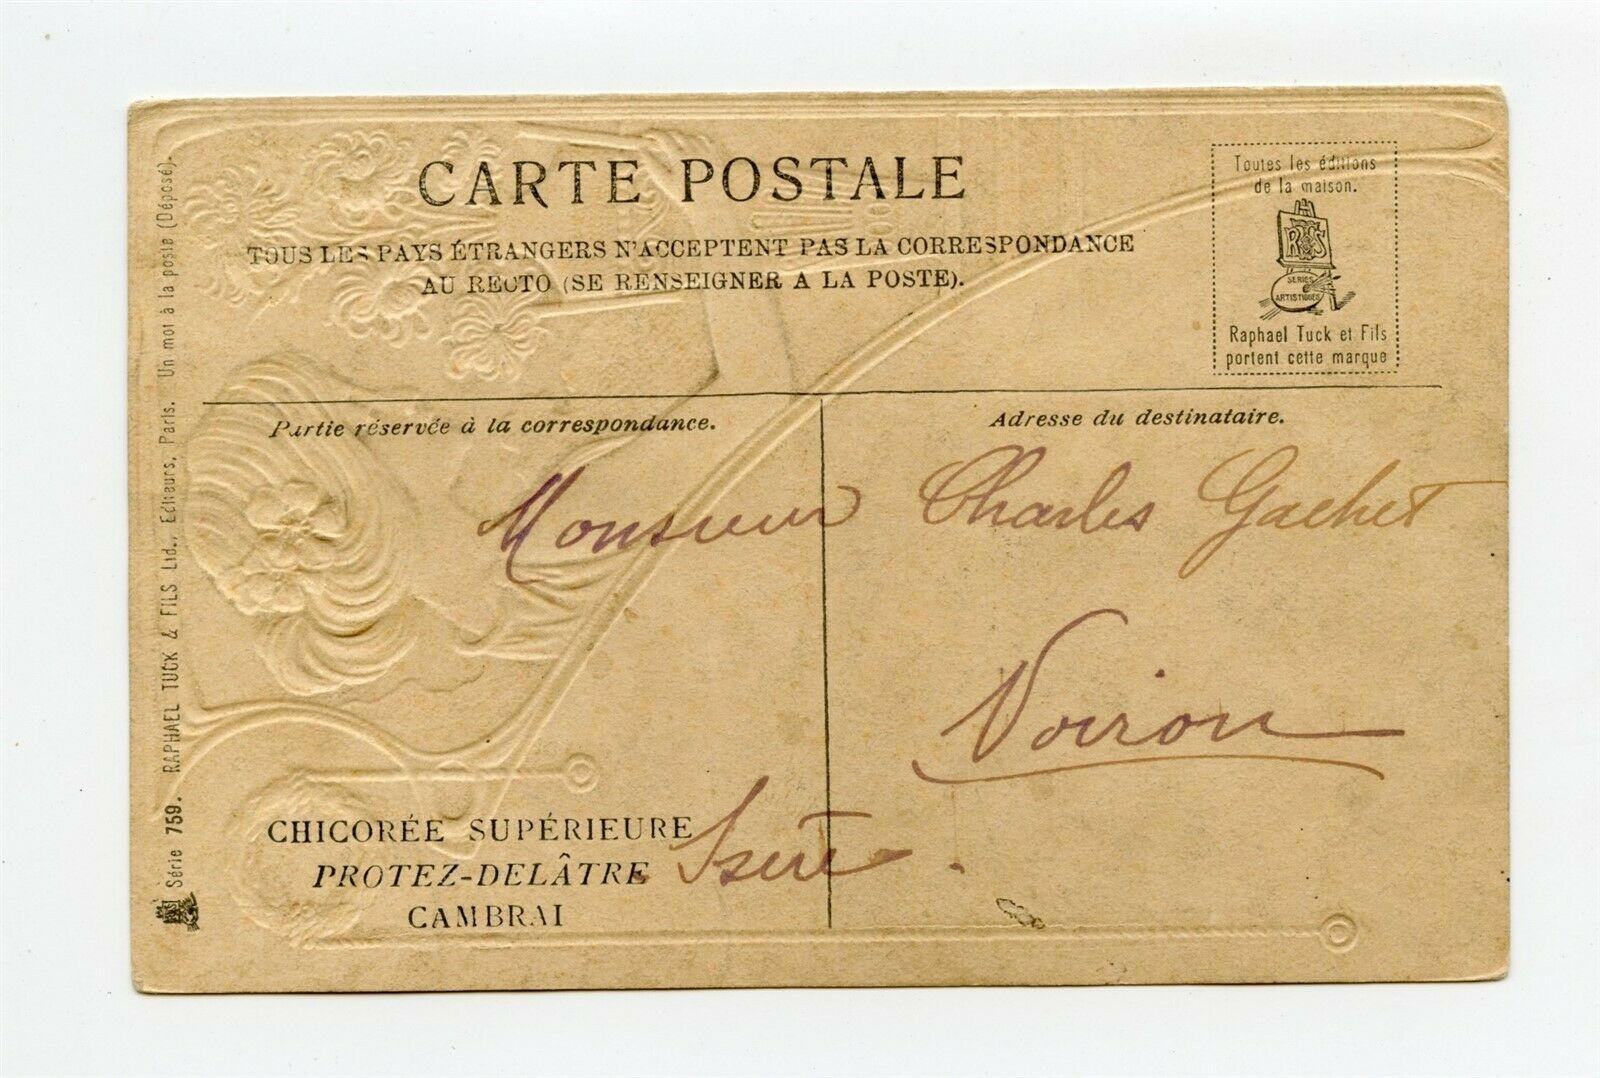 CARTE POSTALE
TOUS LES PAYS ÉTRANGERS N'ACCEPTENT PAS LA CORRESPONDANCE
AU RECTO (SE RENSEIGNER A LA POSTE).
Toutes les éditions
de la maison.
R T S
SERIES
ARTISTIQUES
Raphael Tuck et Fils
portent cette marque
Partie réservée à la correspondance.
Adresse du destinataire.
Monsieur Charles Gachet
Voiron
Isère.
CHICORÉE SUPÉRIEURE
PROTEZ-DELÂTRE
CAMBRAI
Série 759. RAPHAEL TUCK & FILS Ltd., Editeurs, Paris. Un mot à la poste (Déposé).